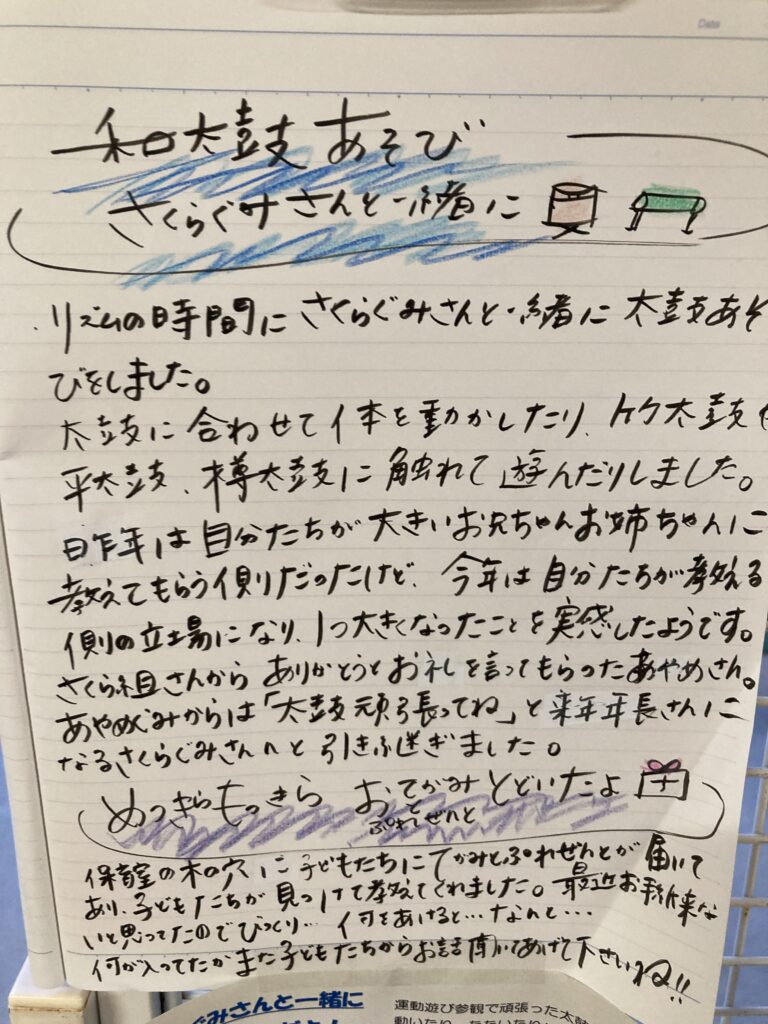 Date
和太鼓あそび
さくらぐみさんと一緒に
リズムの時間にさくらぐみさんと一緒に太鼓あそ
びをしました。
太鼓に合わせて体を動かしたり、竹太鼓
平太鼓、樽太鼓に触れて遊んだりしました。
昨年は自分たちが大きいお兄ちゃんお姉ちゃんに
教えてもらう側だったけど、今年は自分たちが教える
側の立場になり、1つ大きくなったことを実感したようです。
さくら組さんからありがとうとお礼を言ってもらったあやめさん。
あやめぐみからは「太鼓頑張ってね」と来年年長さんに
なるさくらぐみさんへと引き継ぎました。
めっきらもっきら おてがみとどいたよ
と
ぷれぜんと
保育室の木の穴に子どもたちにてがみとぷれぜんとが届いて
あり、子どもたちが見つけて教えてくれました。最近お手紙来な
いと思ってたのでびっくり… 何をあけると…なんと…
何が入ってたかまた子どもたちからお話聞いてあげて下さいね!!
ぐみさんと一緒に
運動遊び参観で頑張った太鼓